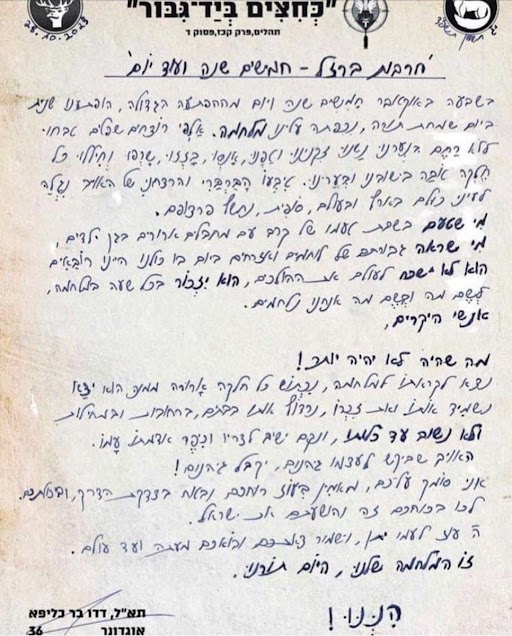 28.10.2023
"כְּחִצִּים בְּיַד־גִּבּוֹר"
תהלים, פרק קכז, פסוק ד
'חרבות ברזל - חמישים שנה ועוד יום'
בשבעה באוקטובר חמישים שנה ויום מההפתעה הגדולה, הופתענו שנית
ביום שמחת תורה, נכפתה עלינו מלחמה. אלפי רוצחים שפלים טבחו
ללא רחם בנערינו נשינו זקנינו וטפנו, אנסו, בזזו, שרפו וחיללו כל
חלקה טובה בישובינו ובערינו. טִבְעוֹ הַבַּרְבָּרִי והרצחני של האויב נִגְלָה
לעיני כולם בארץ ובעולם, סופית, נחשף פרצופם.
מי שטעם בשבת טעמו של קרב עם מחבלים ארורים בגן ילדים,
מי שראה גבורתם של לוחמים ואזרחים ביום בו כולנו היינו רובאים
הוא לא ישכח לעולם את ההולכים, הוא יִזְכּוֹר בכל שעה במלחמה,
לְשֵׁם מה וּבְשֵׁם מה אנחנו נלחמים.
אנשי היקרים,
מה שהיה לא יהיה יותר!
נצא לקראתו למלחמה, נִכְתּוֹשׁ כל חלקה ארורה ממנה הוא יצא
נשמיד אותו ואת זכרו, נרדוף אותו בבתים, ברחובות ובמחילות
ולא נשוב עד כלותו, ונקם ישיב לצריו וכִפֶּר אדמתו עַמּוֹ.
האויב שביקש לעצמו גהנום, יקבל גהנום!
אני סומך עליכם, מאמין בְּעוֹז רוחכם ובטוח בצדקת הדרך, ובטחתם.
לכו בכוחכם זה והושעתם את ישראל.
ה' עוז לעמו יתן, וישמור צאתכם ובואכם מעתה ועד עולם.
זו המלחמה שלנו, היום תורנו.
הִנֵּנוּ!
תא"ל, דדו בר כליפא
אוגדונר
36